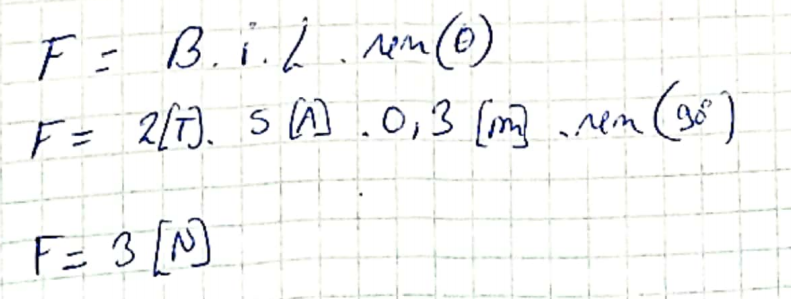 F = B. i. L . sen(θ)
F = 2[T]. 5 [A] . 0,3 [m] . sen (90°)
F = 3 [N]